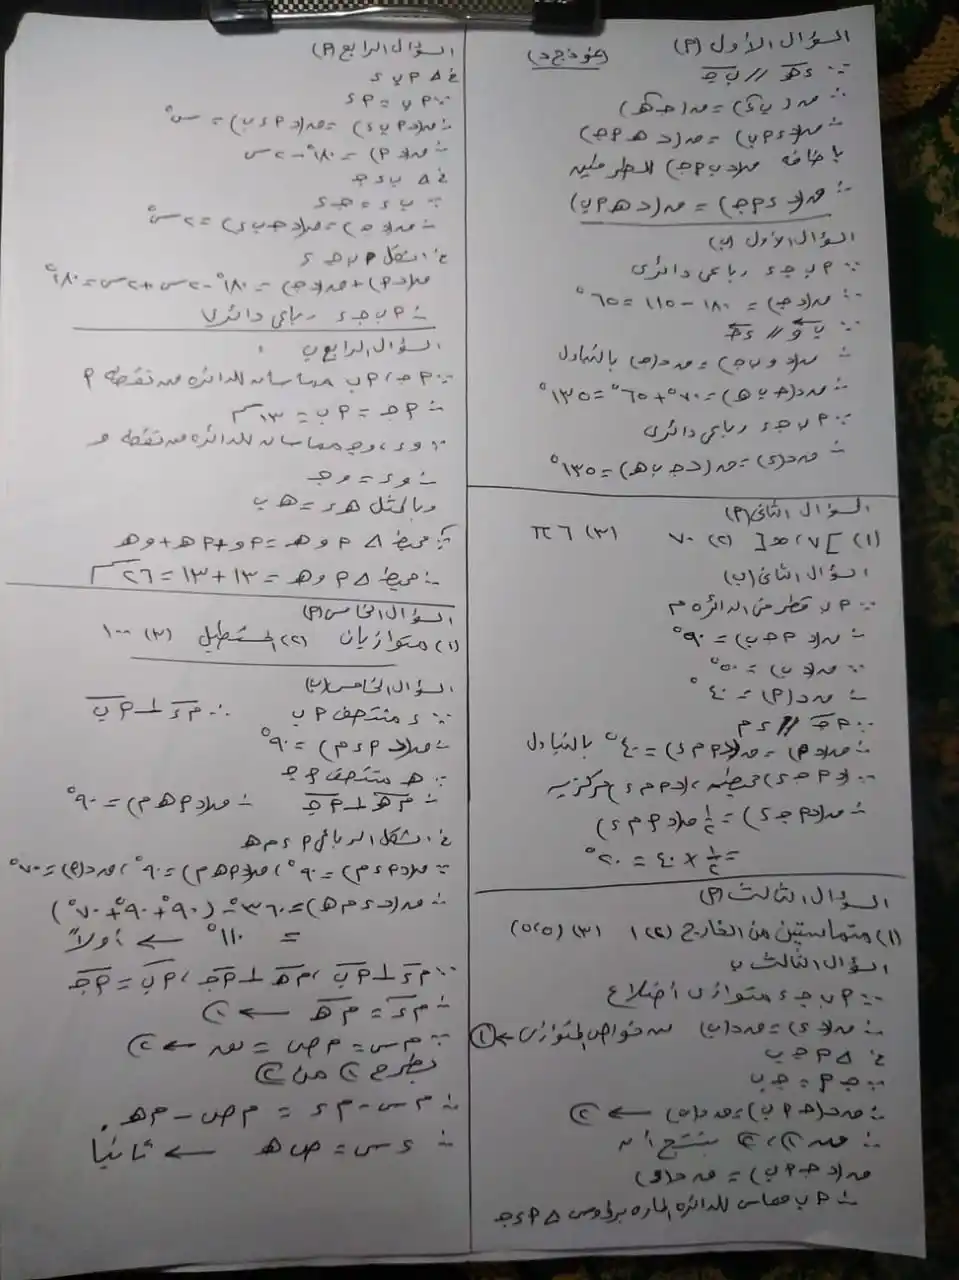 السؤال الأول (٢) (نموذج د)
∵ دهـ // ب جـ
∴ ق(ب د) = ق(جـ هـ)
∴ ق(د د٢ب) = ق(د هـ٢جـ)
باضافه ق(د ب٢جـ) للطرفين
∴ ق(د د٢جـ) = ق(د هـ٢ب)
السؤال الأول (ب)
∵ ٢ب جـ د رباعى دائرى
∴ ق(د جـ) = ١٨٠ - ١١٥ = ٦٥°
∵ ب و // د جـ
∴ ق(د وب جـ) = ق د(جـ) بالتبادل
∴ ق د(جـ ب هـ) = ٧٠° + ٦٥° = ١٣٥°
∵ ٢ب جـ د رباعى دائرى
∴ ق د(د) = ق(د جـ ب هـ) = ١٣٥°
السؤال الثانى (٢)
(١) ]٧، ∞[ (٢) ٧٠ (٣) ٦ π
السؤال الثانى (ب)
∵ ٢ب قطر فى الدائرة م
∴ ق(د ٢جـ ب) = ٩٠°
∵ ق(د ب) = ٥٠°
∴ ق د(٢) = ٤٠°
∵ ٢جـ // د م
∴ ق(د ٢) = ق(د ٢م د) = ٤٠° بالتبادل
∵ (د ٢جـ د) محيطيه، (د ٢م د) مركزيه
∴ ق(د ٢جـ د) = ١/٢ ق(د ٢م د)
= ١/٢ × ٤٠ = ٢٠°
السؤال الثالث (٢)
(١) متماستين من الخارج (٢) ١ (٣) (٥،٥)
السؤال الثالث ب
∵ ٢ب جـ د متوازى اضلاع
∴ ق(د د) = ق د(ب) من خواص المتوازى ← ①
فى Δ ٢جـ ب
∵ جـ ٢ = جـ ب
∴ ق د(جـ ٢ب) = ق د(ب) ← ②
∴ من ①، ② ينتج أن
ق(د جـ ٢ب) = ق د(د)
∴ ٢ب مماس للدائرة الماره برؤوس Δ ٢د جـ
السؤال الرابع (٢)
فى Δ ٢ب د
∵ ٢ب = ٢د
∴ ق(د ٢ب د) = ق(د ٢د ب) = س°
∴ ق(د ٢) = ١٨٠° - ٢س
فى Δ ب د جـ
∵ ب د = جـ د
∴ ق(د جـ) = ق(د جـ ب د) = ٢س°
فى الشكل ٢ب جـ د
ق(د ٢) + ق(د جـ) = ١٨٠° - ٢س + ٢س = ١٨٠°
∴ ٢ب جـ د رباعى دائرى
السؤال الرابع ب
∵ ٢جـ، ٢ب مماسان للدائرة من نقطه ٢
∴ ٢جـ = ٢ب = ١٣سم
∵ و د، و جـ مماسان للدائرة من نقطه و
∴ و د = و جـ
وبالمثل هـ د = هـ ب
∵ محيط Δ ٢وهـ = ٢و + ٢هـ + وهـ
∴ محيط Δ ٢وهـ = ١٣ + ١٣ = ٢٦سم
السؤال الخامس (٢)
(١) متوازيان (٢) المستطيل (٣) ١٠٠
السؤال الخامس (ب)
∵ د منتصف ٢ب ∴ م د ⊥ ٢ب
∴ ق(د ٢د م) = ٩٠°
∵ هـ منتصف ٢جـ
∴ م هـ ⊥ ٢جـ ∴ ق(د ٢هـ م) = ٩٠°
فى الشكل الرباعى ٢د م هـ
∵ ق(د ٢د م) = ٩٠°، ق(د ٢هـ م) = ٩٠°، ق د(٢) = ٧٠°
∴ ق(د د م هـ) = ٣٦٠° - (٩٠° + ٩٠° + ٧٠°)
= ١١٠° ← أولاً
∵ م د ⊥ ٢ب، م هـ ⊥ ٢جـ، ٢ب = ٢جـ
∴ م د = م هـ ← ①
∵ م س = م ص = نق ← ②
بطرح ① من ②
∴ م س - م د = م ص - م هـ
∴ د س = ص هـ ← ثانيا